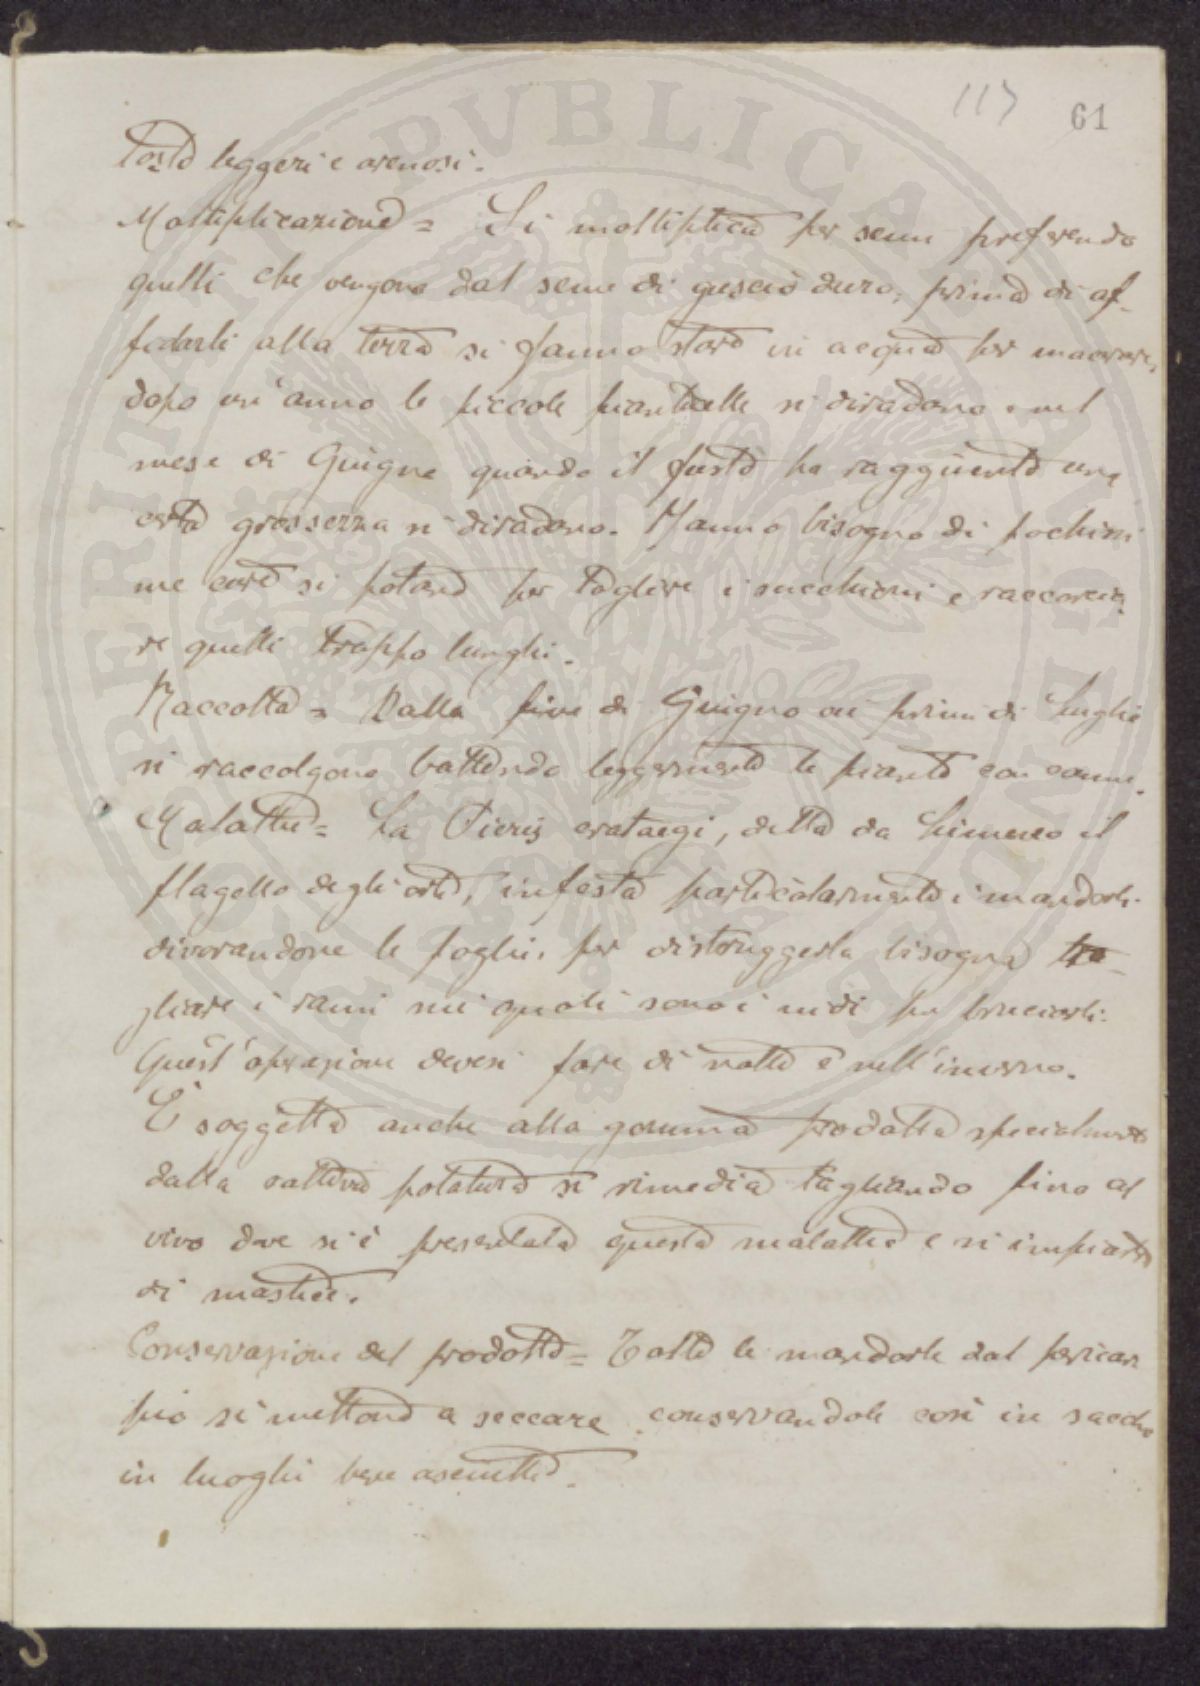 117 61
tosto leggeri e arenosi.
Moltiplicazione = Si moltiplica per semi preferendo
quelli che vengono dal seme di guscio duro, prima di af-
fidarli alla terra si fanno stare in acqua per macerare,
dopo un'anno le piccole pianticelle si diradano e nel
mese di Giugno quando il fusto ha raggiunto una
certa grossezza si diradano. Hanno bisogno di pochissi
me cure si potano per togliere i succhioni e raccorcia
re quelli troppo lunghi.
Raccolta = Dalla fine di Giugno ai primi di Luglio
si raccolgono battendo leggermente le piante con canne.
Malattie = La Pieris crataegi, detta da Linneo il
flagello degli orti, infesta particolarmente i mandorli
divorandone le foglie, per distruggerla bisogna ta-
gliare i rami nei quali sono i nidi per bruciarli.
Quest'operazione devesi fare di notte e nell'inverno.
È soggetta anche alla gomma prodotta specialmente
dalla cattiva potatura si rimedia tagliando fino al
vivo dove si è presentata questa malattia e si impiastra
di mastice.
Conservazione del prodotto = Tolte le mandorle dal pericar
pio si mettono a seccare conservandole così in sacchi
in luoghi bene asciutti.
PVBLICAE